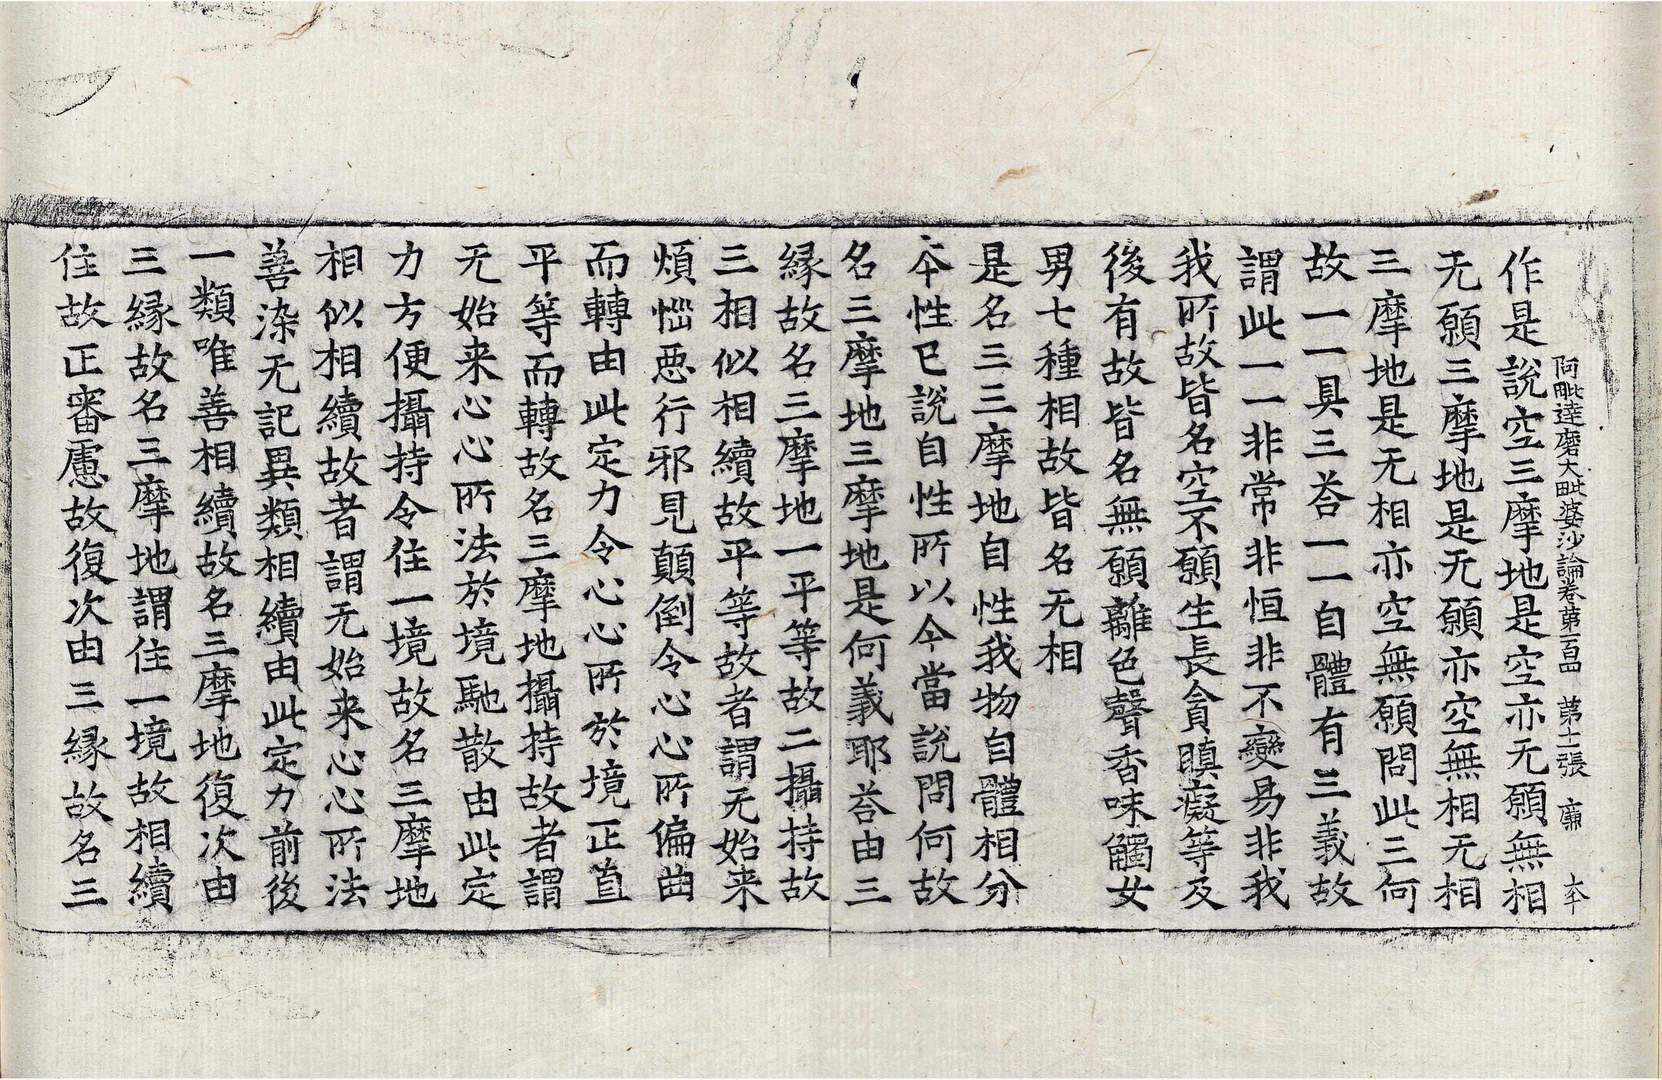 阿毗達磨大毗婆沙論卷第一百四 第十二張 廉
作是說空三摩地是空亦无願無相
无願三摩地是无願亦空無相无相
三摩地是无相亦空無願問此三何
故一一具三荅一一自體有三義故
謂此一一非常非恒非不變易非我
我所故皆名空不願生長貪瞋癡等及
後有故皆名無願離色聲香味觸女
男七種相故皆名无相
是名三三摩地自性我物自體相分
本性已說自性所以今當說問何故
名三摩地三摩地是何義耶荅由三
緣故名三摩地一平等故二攝持故
三相似相續故平等故者謂无始来
煩惱惡行邪見顛倒令心心所偏曲
而轉由此定力令心心所於境正直
平等而轉故名三摩地攝持故者謂
无始来心心所法於境馳散由此定
力方便攝持令住一境故名三摩地
相似相續故者謂无始来心心所法
善染无記異類相續由此定力前後
一類唯善相續故名三摩地復次由
三緣故名三摩地謂住一境故相續
住故正審慮故復次由三緣故名三